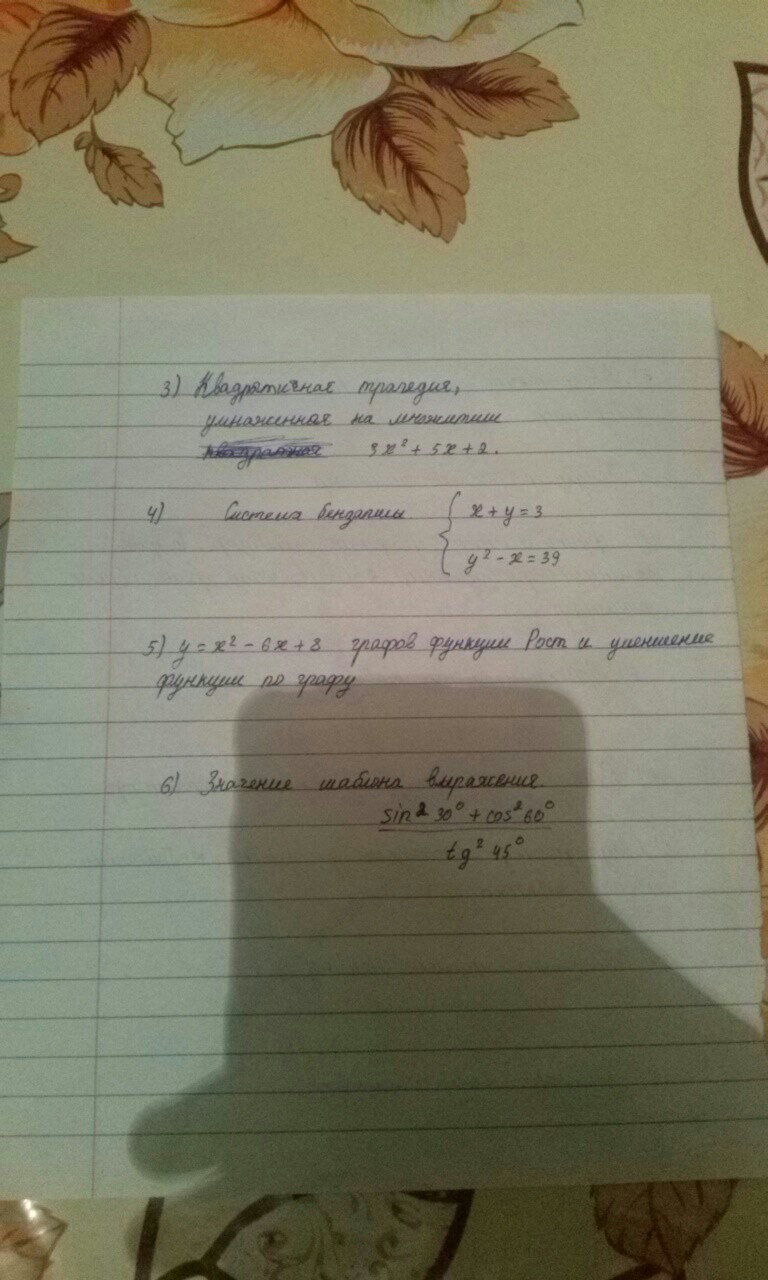 3) Квадратичная трагедия,
умноженная на множители
3x² + 5x + 2.
4) Система { x + y = 3
y² - x = 39
5) y = x² - 6x + 8 графов функции Рост и уменшение
функции по графу
6) Значение шаблона выражения.
sin² 30° + cos² 60°
tg² 45°